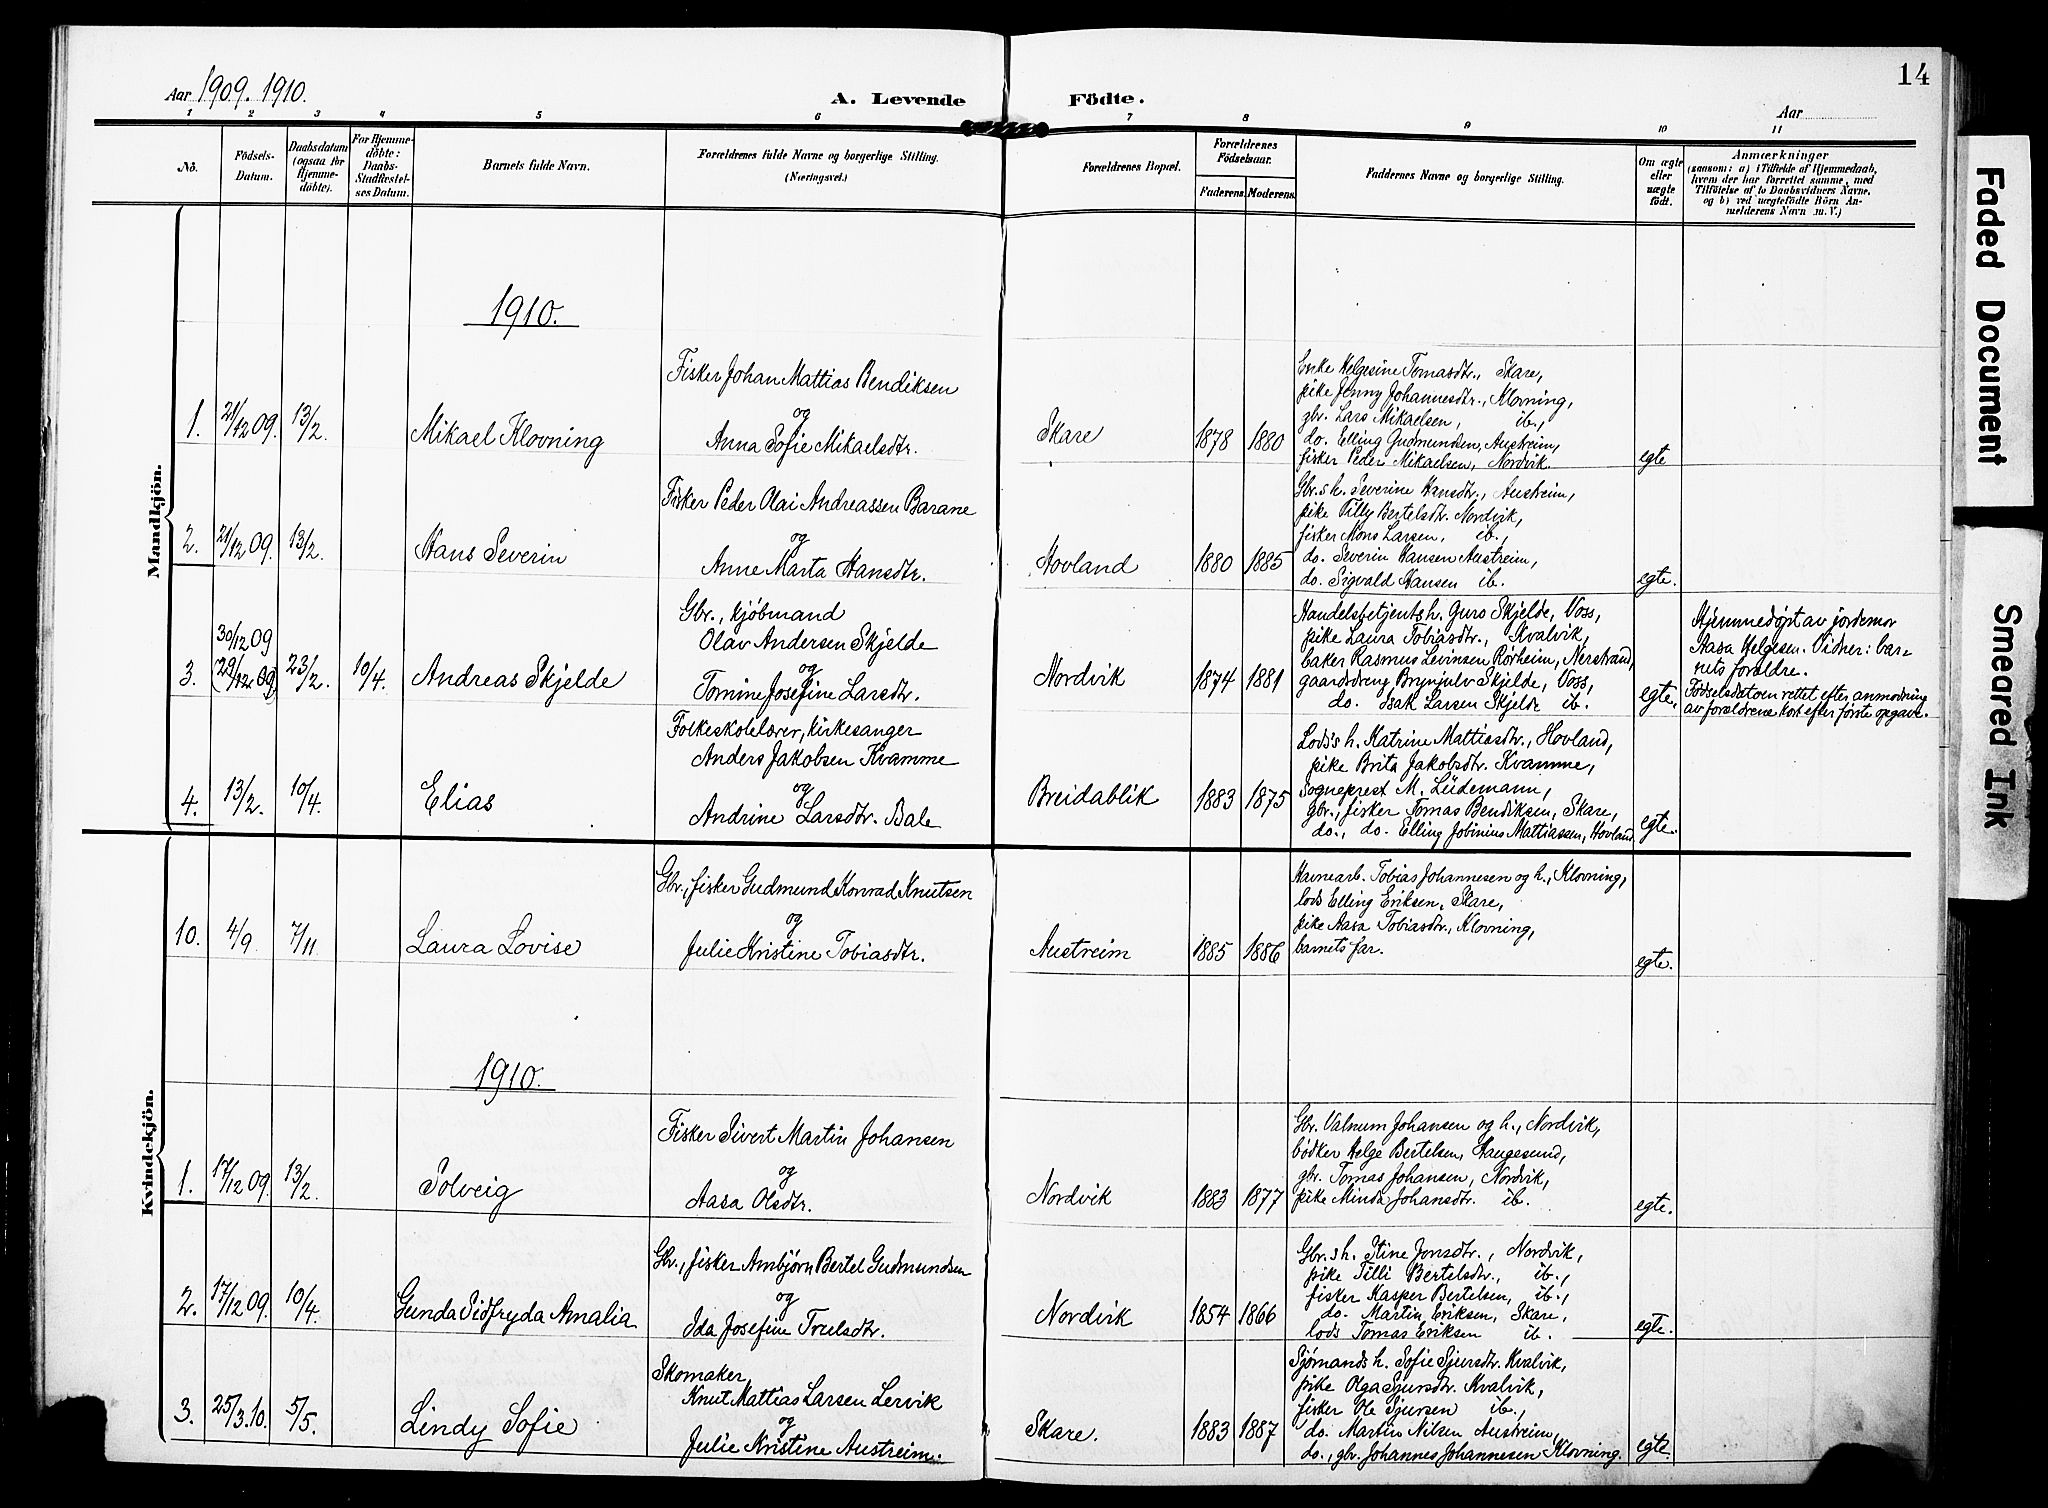 14
Aar 1909. 1910.
A. Levende Födte.
Aar
1 2 3 4 5 6 7 8 9 10 11
No.
Födsels-
Datum.
Daabsdatum
(ogsaa for
Hjemme-
döbte).
For Hjemme-
döbte:
Daabs-
Stadfæstel-
ses Datum.
Barnets fulde Navn.
Forældrenes fulde Navne og borgerlige Stilling.
(Næringsvei.)
Forældrenes Bopæl.
Forældrenes
Födselsaar.
Faderens. Moderens.
Faddernes Navne og borgerlige Stilling.
Om ægte
eller
uægte
födt.
Anmærkninger
(saasom: a) i Tilfælde af Hjemmedaab,
hvem der har forrettet samme, med
Tilföielse af to Daabsvidners Navne,
og b) ved uægtefödte Börn An-
melderens Navn m. V.)
Mandkjön.
1910.
1. 21/12 09. 13/2. Mikael Klovning
Fisker Johan Mattias Bendiksen
og
Anna Sofie Mikaelsdtr.
Skare 1878 1880
Enke Helgesine Tomasdtr., Skare,
pike Jenny Johannesdtr., Klovning,
gbr. Lars Mikaelsen, ib.,
do. Elling Gudmundsen, Austreim,
fisker Peder Mikaelsen, Nordvik.
egte
2. 21/12 09. 13/2. Hans Severin
Fisker Peder Olai Andreassen Barane
og
Anne Marta Hansdtr.
Hovland 1880 1885
Gbr.s h. Severine Hansdtr., Austreim,
pike Tilly Bertelsdtr. Nordvik,
fisker Mons Larsen, ib.,
do. Severin Hansen Austreim,
do. Sigvald Hansen ib.
egte.
3. 30/12 09
(29/12 09) 23/2. 10/4. Andreas Skjelde
Gbr., kjöbmand
Olav Andersen Skjelde
og
Tomine Josefine Larsdtr.
Nordvik 1874 1881
Handelsbetjents h. Guro Skjelde, Voss,
pike Laura Tobiasdtr., Kvalvik,
baker Rasmus Levinsen Rorheim, Nerstrand,
gaardsdreng Brynjulv Skjelde, Voss,
do. Isak Larsen Skjelde ib.
egte.
Hjemmedøpt av jordemor
Aasa Helgesen. Vidner: bar-
nets forældre.
Födselsdatoen rettet efter anmodning
av forældrene kort efter første opgave.
4. 13/2. 10/4. Elias
Folkeskolelærer, kirkesanger
Anders Jakobsen Kvamme
og
Andrine Larsdtr. Bale
Breidablik 1883 1875
Lods's h. Katrine Mattiasdtr., Hovland,
pike Brita Jakobsdtr. Kvamme,
Sogneprest M. Lüdemann,
Gbr., fisker Tomas Bendiksen, Skare,
do., do. Elling Jobinius Mattiassen, Hovland
egte.
Kvindekjön.
10. 4/9. 7/11. Laura Lovise
Gbr., fisker Gudmund Konrad Knutsen
og
Julie Kristine Tobiasdtr.
Austreim 1885 1886
Havnearb. Tobias Johannesen og h., Klovning,
lods Elling Eriksen, Skare,
pike Aasa Tobiasdtr., Klovning,
barnets far.
egte.
1910.
1. 17/12 09. 13/2. Solveig
Fisker Sivert Martin Johansen
og
Aasa Olsdtr.
Nordvik 1883 1877
Gbr. Valnum Johansen og h., Nordvik,
bödker Helge Bertelsen, Haugesund,
gbr. Tomas Johansen, Nordvik,
pike Minda Johansdtr. ib.
egte.
2. 17/12 09. 10/4. Gunda Sidfryda Amalia
Gbr., fisker Ambjörn Bertel Gudmundsen
og
Ida Josefine Trulsdtr.
Nordvik 1854 1866
Gbr.s h. Stine Jonsdtr., Nordvik,
pike Tilli Bertelsdtr., ib.,
fisker Kasper Bertelsen, ib.,
do. Martin Eriksen, Skare,
lods Tomas Eriksen ib.
egte.
3. 25/3.10. 5/5. Lindy Sofie
Skomaker,
Knut Mattias Larsen Lervik
og
Julie Kristine Austreim.
Skare. 1883 1887
Sjømands h. Sofie Sjursdtr. Kvalvik,
pike Olga Sjursdtr. Kvalvik,
fisker Ole Sjursen ib.,
do. Martin Nilsen Austreim,
do., gbr. Johannes Johannesen Klovning.
egte.
Faded Document
Smeared Ink